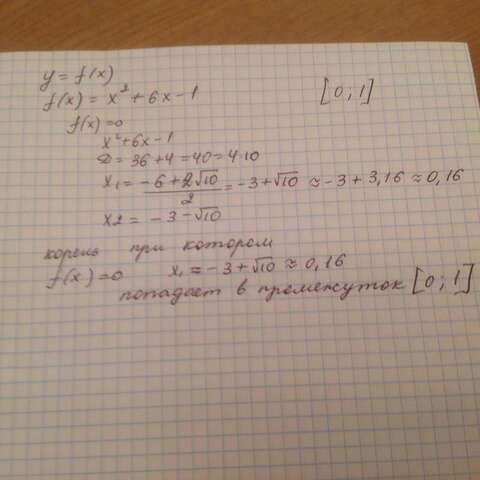 y = f(x)
f(x) = x² + 6x - 1 [0; 1]
f(x) = 0
x² + 6x - 1
D = 36 + 4 = 40 = 4·10
x₁ = (-6 + 2√10)/2 = -3 + √10 ≈ -3 + 3,16 ≈ 0,16
x2 = -3 - √10
корень при котором
f(x) = 0 x₁ = -3 + √10 ≈ 0,16
попадает в промежуток [0; 1]